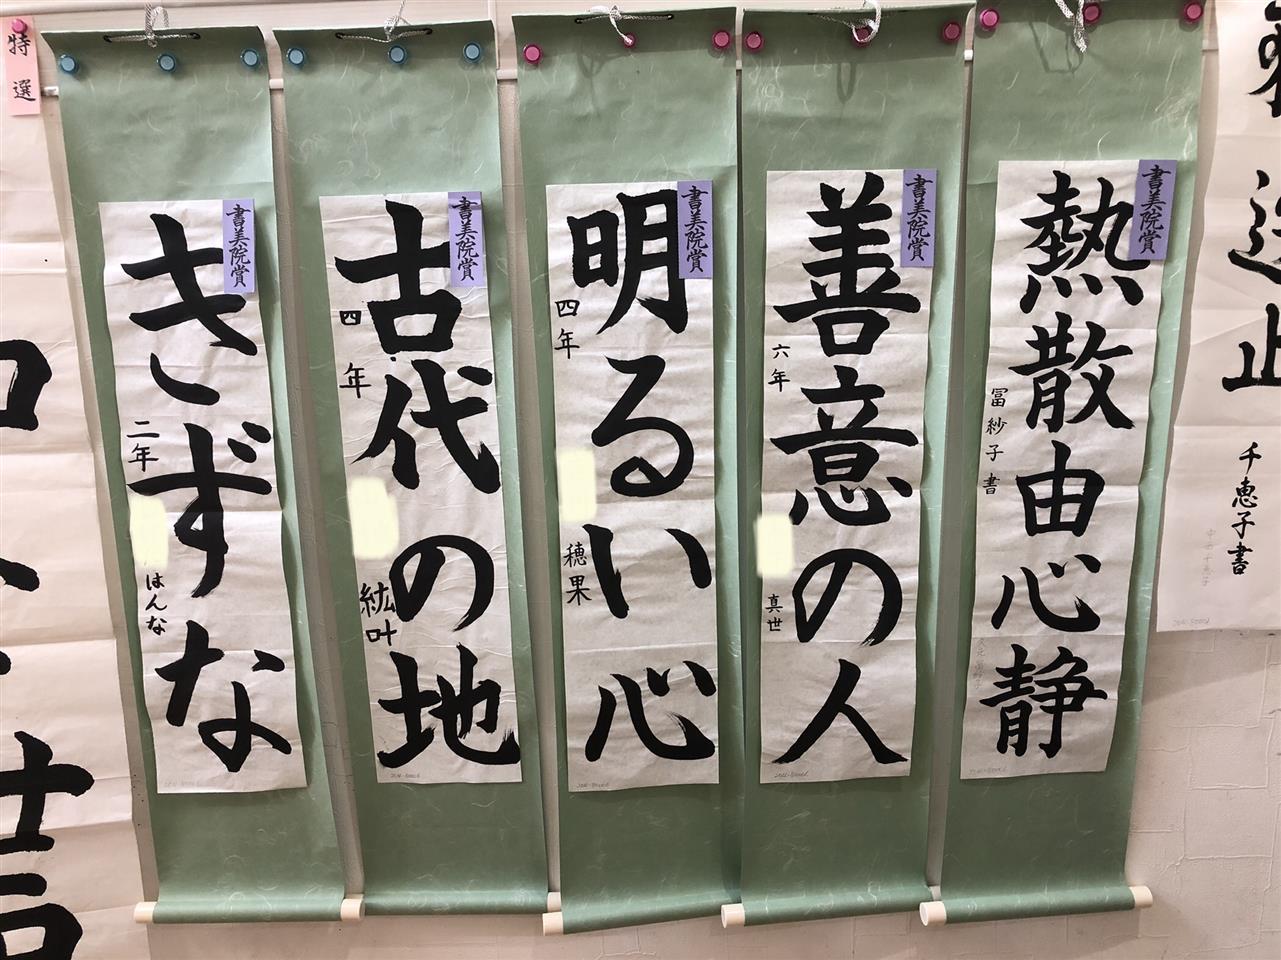 特選
きずな
二年
はんな
書美院賞
古代の地
四年
紘叶
書美院賞
明るい心
四年
穂果
書美院賞
善意の人
六年
真世
書美院賞
熱散由心静
冨紗子書
書美院賞
千恵子書